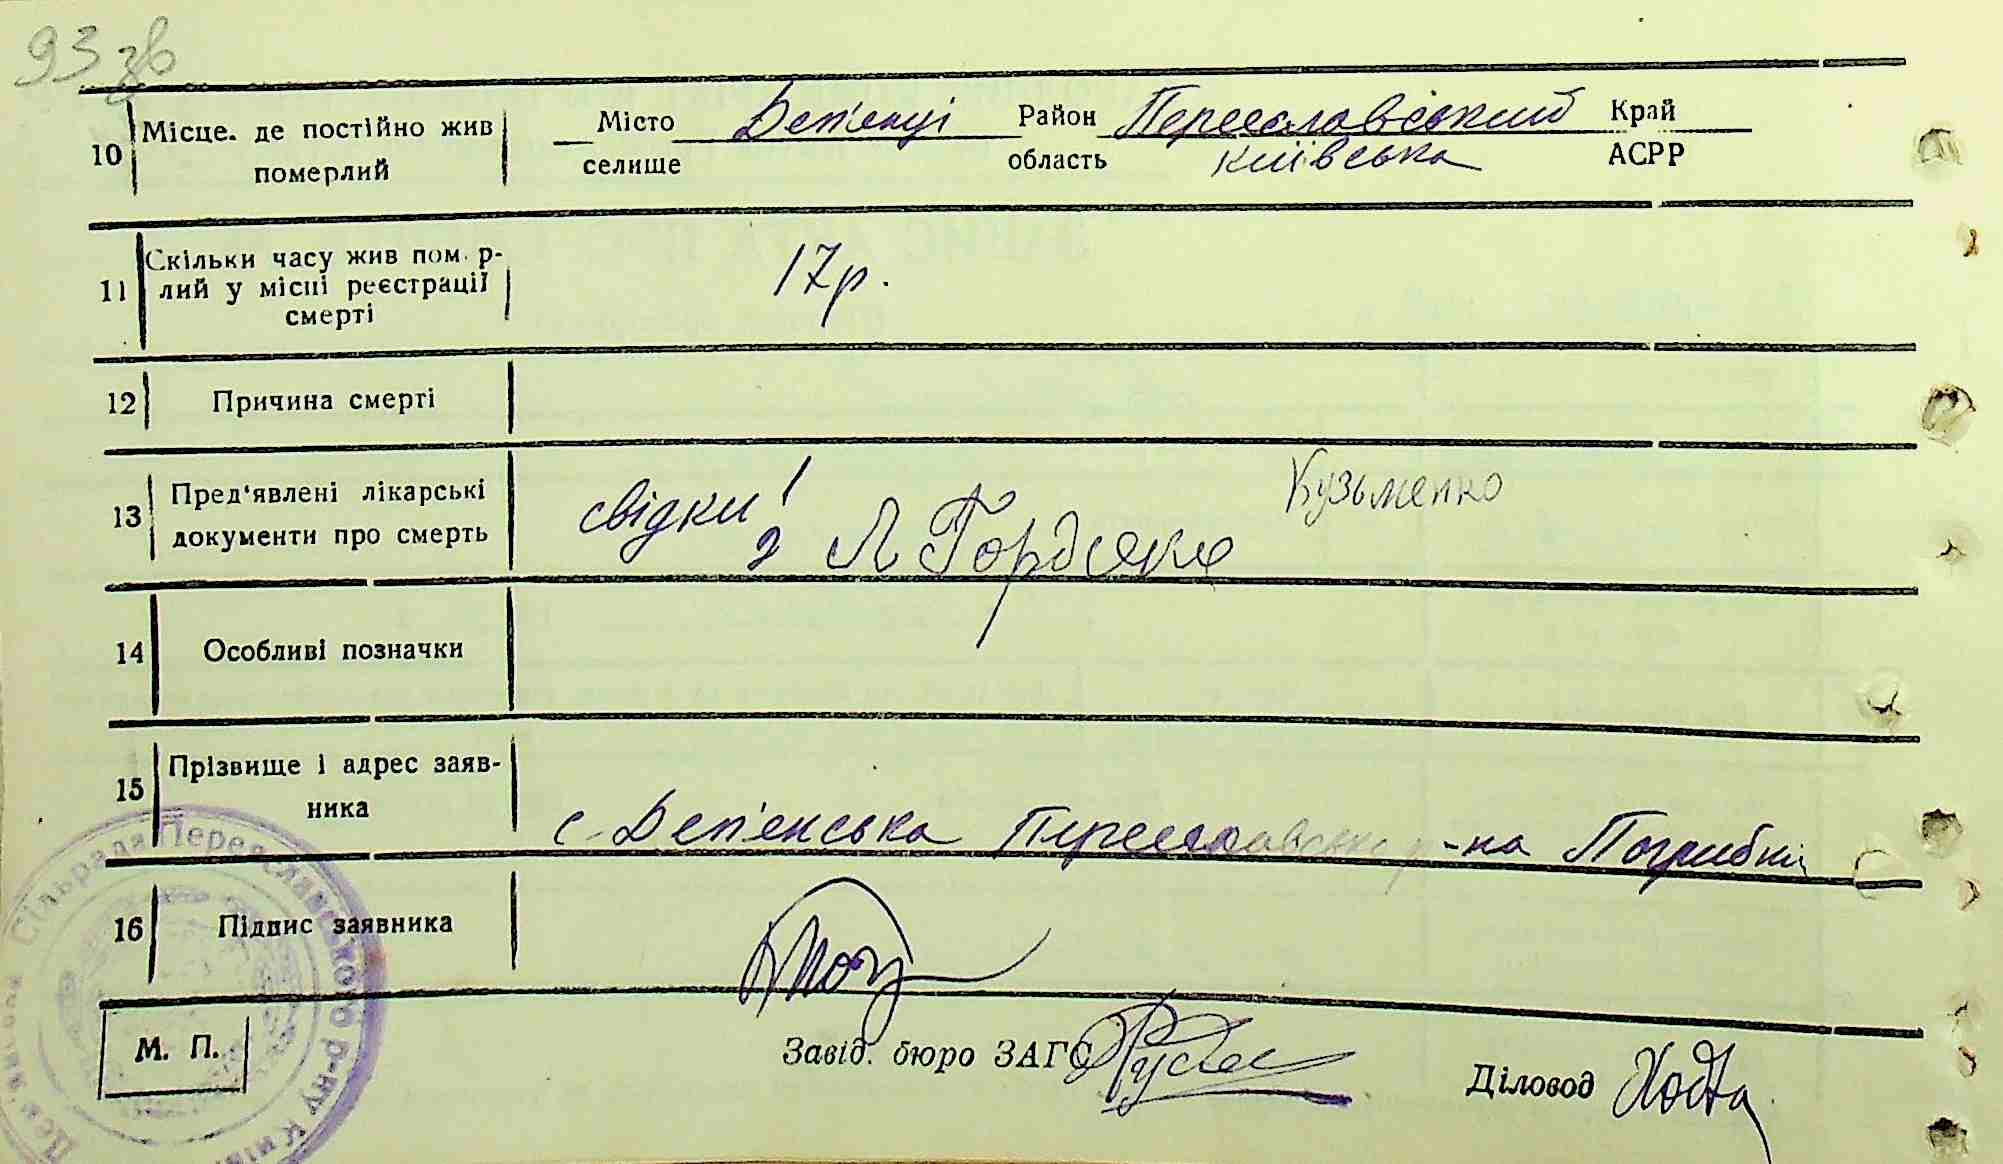 93 зв
10 Місце. де постійно жив померлий
Місто Дем'янці Район Переяславський Край
селище область київська АСРР
11 Скільки часу жив пом. р-
лий у місці реєстрації
смерті
17 р.
12 Причина смерті
13 Пред'явлені лікарські
документи про смерть
свідки 1 Кузьменко
2 Л Гордієнко
14 Особливі позначки
15 Прізвище і адрес заяв-
ника
с-Дем'янська Переяславського р-на Погрибни
16 Підпис заявника
М. П.
Завід. бюро ЗАГС
Діловод
Сільрада Переяславського р-ну Київ